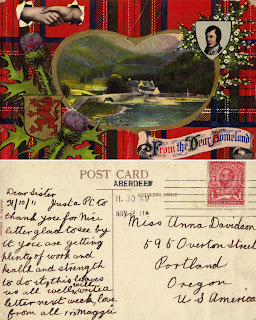 From the Dear Homeland
POST CARD
ABERDEEN
11.30 AM
NOV 2 11
Dear Sister
31/10/11 Just a PC to
thank you for Nice
letter glad to see by
it you are getting
plenty of work and
health and strength
to do it, this leaves
us all well, will write a
letter next week, love
from all Maggie
Miss Anna Davidson
595 Overton Street
Portland
Oregon
U S America